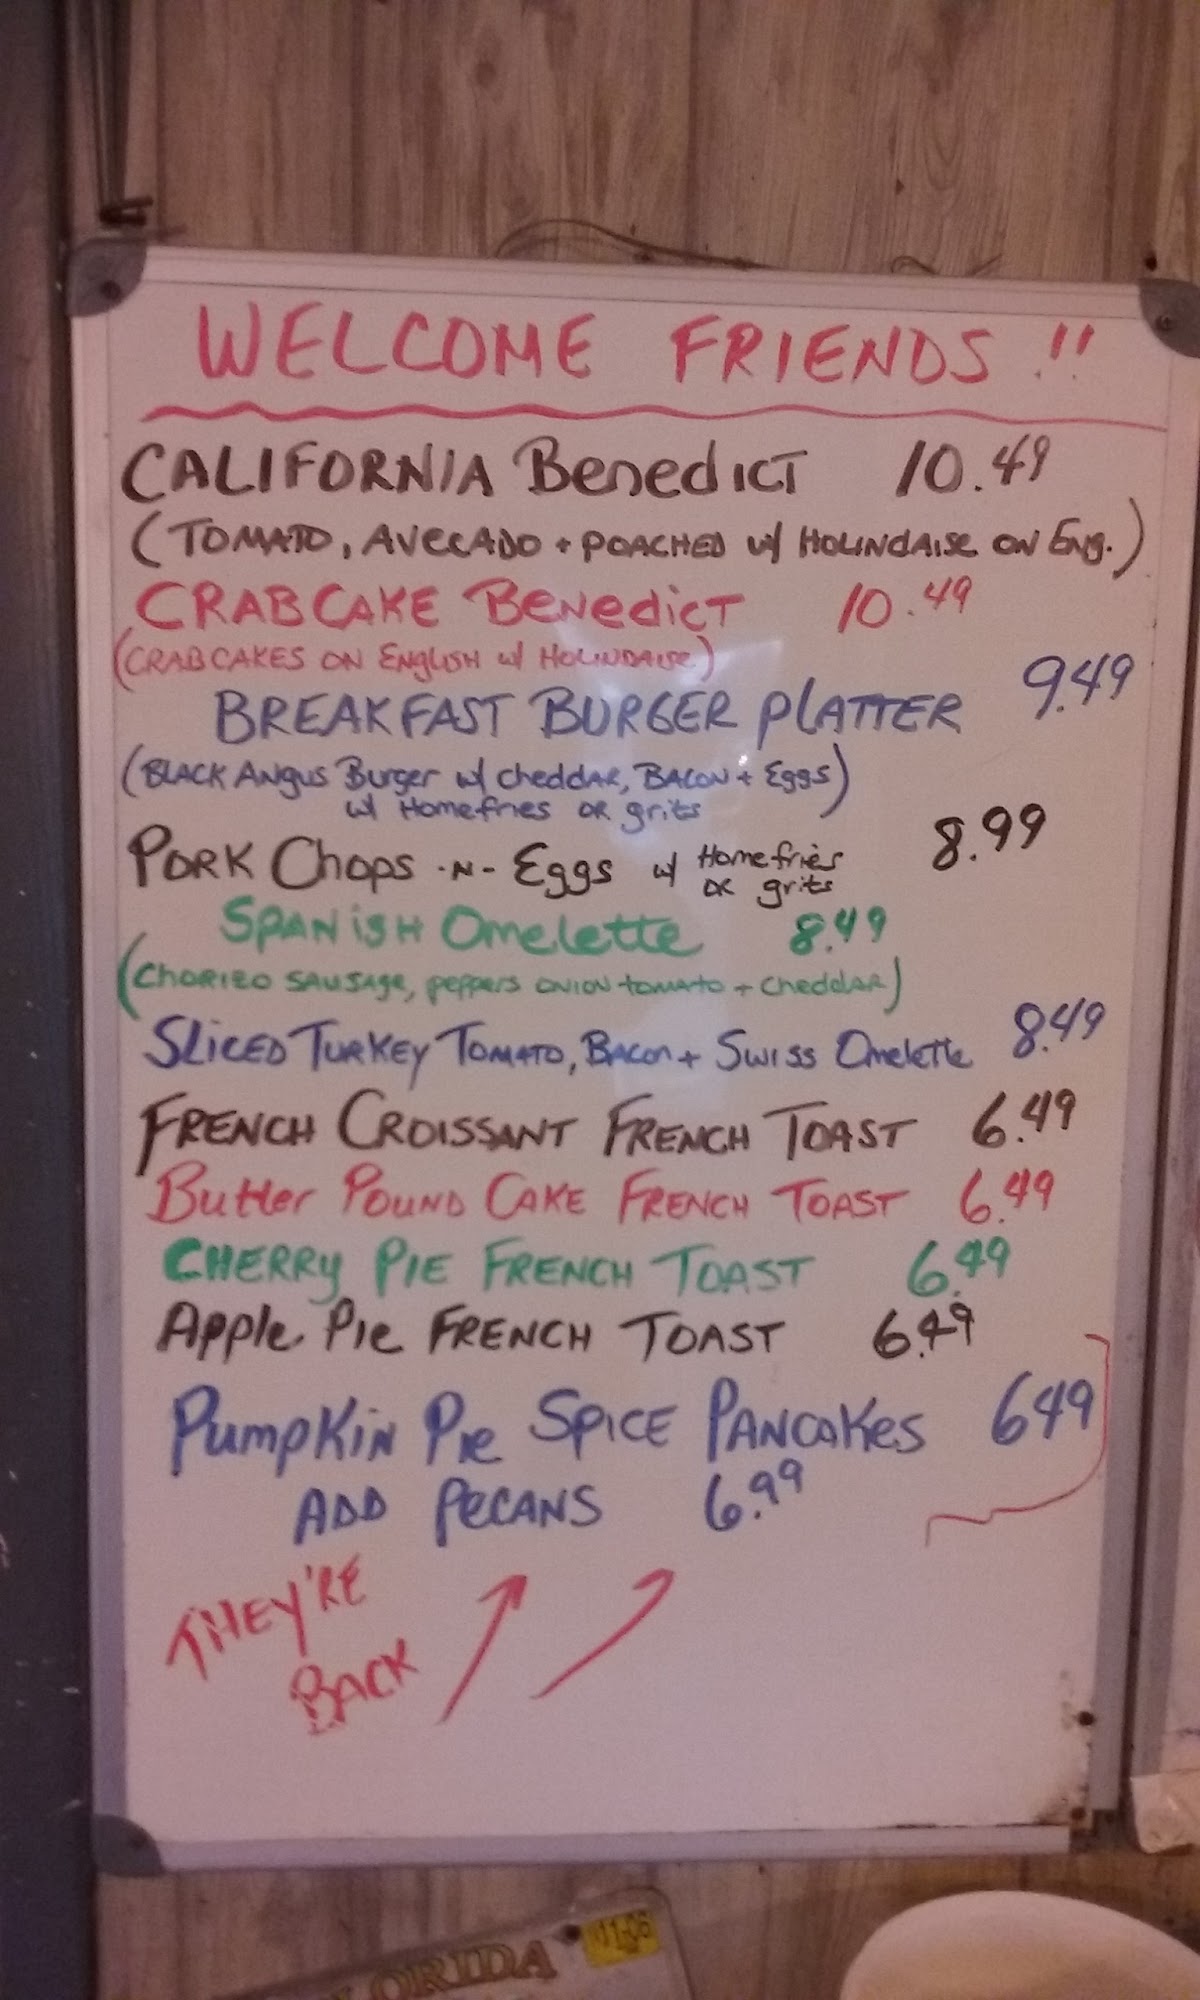 WELCOME FRIENDS !!
CALIFORNIA Benedict 10.49
(TOMATO, AVECADO + POACHED w/ HOLINDAISE ON ENG.)
CRABCAKE Benedict 10.49
(CRABCAKES ON ENGLISH w/ HOLINDAISE)
BREAKFAST BURGER PLATTER 9.49
(BLACK ANgus Burger w/ cheddAR, BACON + Eggs)
w/ Homefries OR grits
PORK Chops -N- Eggs w/ Homefries 8.99
OR grits
SPANiSH Omelette 8.49
(CHORIZO SAUSAge, peppers ONION tomato + CheddAR)
SLICED TURKEY TOMATO, BACON + SWISS Omelette 8.49
FRENCH CROISSANT FRENCH TOAST 6.49
Butter POUND CAKE FRENCH TOAST 6.49
CHERRY PIE FRENCH TOAST 6.49
Apple Pie FRENCH TOAST 6.49
PumpKiN Pie SPICE PANCAKes 649
ADD PeCANS 6.99
THEY'RE
BACK
11-06
LORIDA